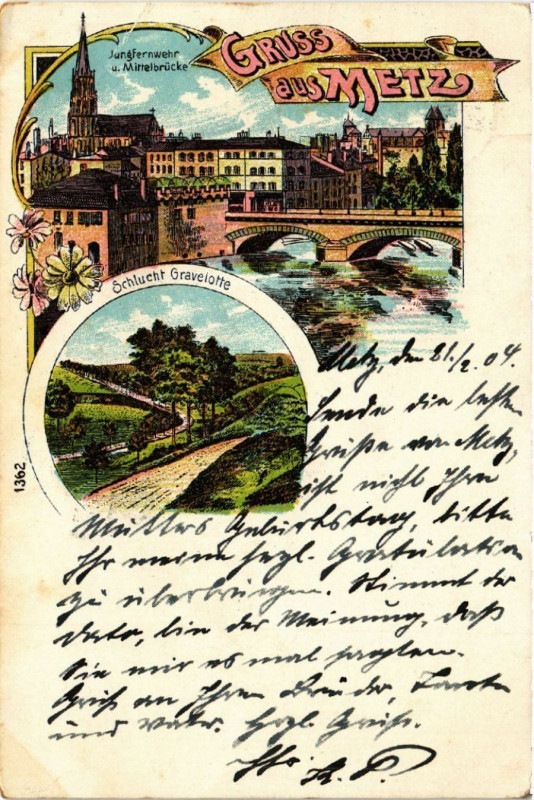 Jungfernwehr
u. Mittelbrücke
GRUSS
aus METZ
Schlucht Gravelotte
1362
Metz, den 21./2. 04.
Sende die letzten
Grüße von Metz,
ist nicht Ihre
Mutters Geburtstag, bitte
Ihr meine herzl. Gratulation
zu überbringen. Stimmt das
Dato, bin der Meinung, daß
Sie mir es mal sagten.
Gruß an Ihren Bruder, Tante
und Herzl. Gruß.
Ihr